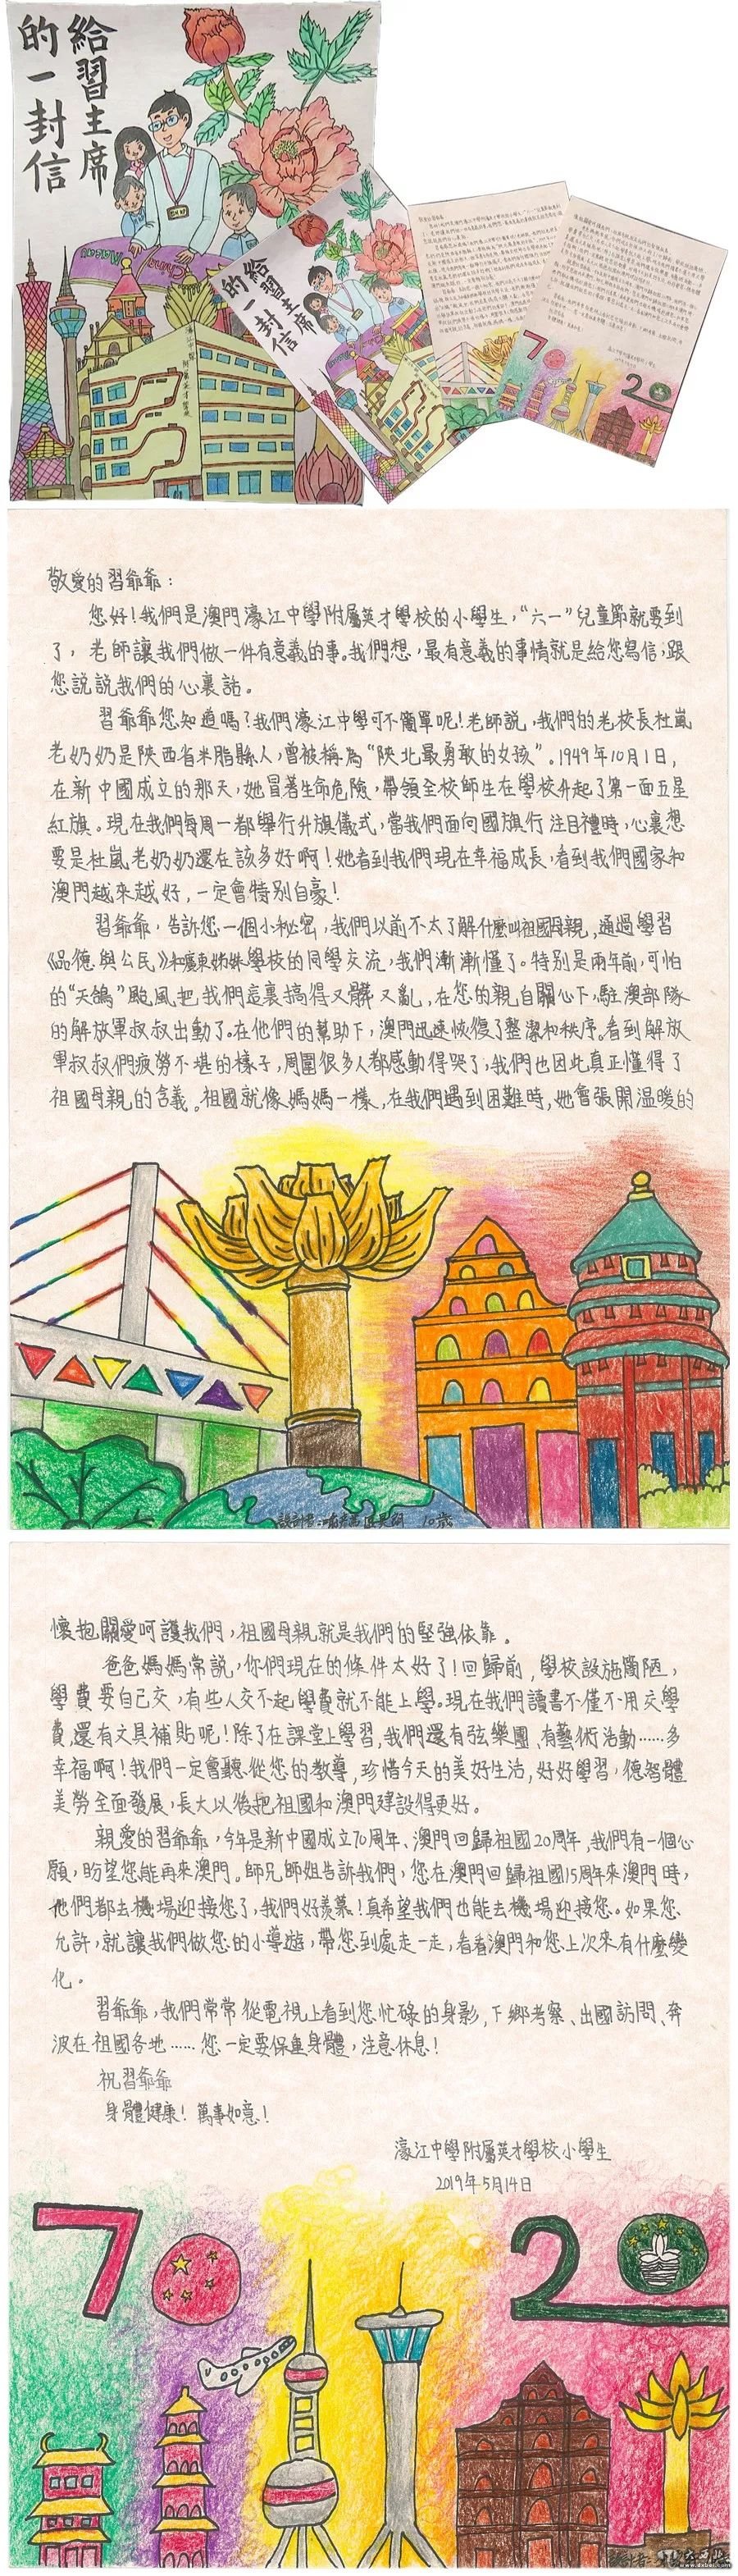 給習主席
的一封信
敬愛的習爺爺：
您好！我們是澳門濠江中學附屬英才學校的小學生，“六一”兒童節就要到
了，老師讓我們做一件有意義的事。我們想，最有意義的事情就是給您寫信，跟
您說說我們的心裏話。
習爺爺您知道嗎？我們濠江中學可不簡單呢！老師說，我們的老校長杜嵐
老奶奶是陝西省米脂縣人，曾被稱為“陝北最勇敢的女孩”。1949年10月1日，
在新中國成立的那天，她冒著生命危險，帶領全校師生在學校升起了第一面五星
紅旗。現在我們每周一都舉行升旗儀式，當我們面向國旗行注目禮時，心裏想
要是杜嵐老奶奶還在該多好啊！她看到我們現在幸福成長，看到我們國家和
澳門越來越好，一定會特別自豪！
習爺爺，告訴您一個小秘密，我們以前不太了解什麼叫祖國母親，通過學習
《品德與公民》和廣東姊妹學校的同學交流，我們漸漸懂了。特別是兩年前，可怕
的“天鴿”颱風把我們這裏搞得又髒又亂，在您的親自關心下，駐澳部隊
的解放軍叔叔出動了。在他們的幫助下，澳門迅速恢復了整潔和秩序。看到解放
軍叔叔們疲勞不堪的樣子，周圍很多人都感動得哭了，我們也因此真正懂得了
祖國母親的含義。祖國就像媽媽一樣，在我們遇到困難時，她會張開溫暖的
10歲
懷抱關愛呵護我們，祖國母親就是我們的堅強依靠。
爸爸媽媽常說，你們現在的條件太好了！回歸前，學校設施簡陋，
學費要自己交，有些人交不起學費就不能上學。現在我們讀書不僅不用交學
費，還有文具補貼呢！除了在課堂上學習，我們還有弦樂團、有藝術活動……多
幸福啊！我們一定會聽從您的教導，珍惜今天的美好生活，好好學習，德智體
美勞全面發展，長大以後把祖國和澳門建設得更好。
親愛的習爺爺，今年是新中國成立70周年、澳門回歸祖國20周年，我們有一個心
願，盼望您能再來澳門。師兄師姐告訴我們，您在澳門回歸祖國15周年來澳門時，
他們都去機場迎接您了，我們好羨慕！真希望我們也能去機場迎接您。如果您
允許，就讓我們做您的小導遊，帶您到處走一走，看看澳門和您上次來有什麼變
化。
習爺爺，我們常常從電視上看到您忙碌的身影，下鄉考察、出國訪問、奔
波在祖國各地……您一定要保重身體，注意休息！
祝習爺爺
身體健康！萬事如意！
濠江中學附屬英才學校小學生
2019年5月14日
70 20